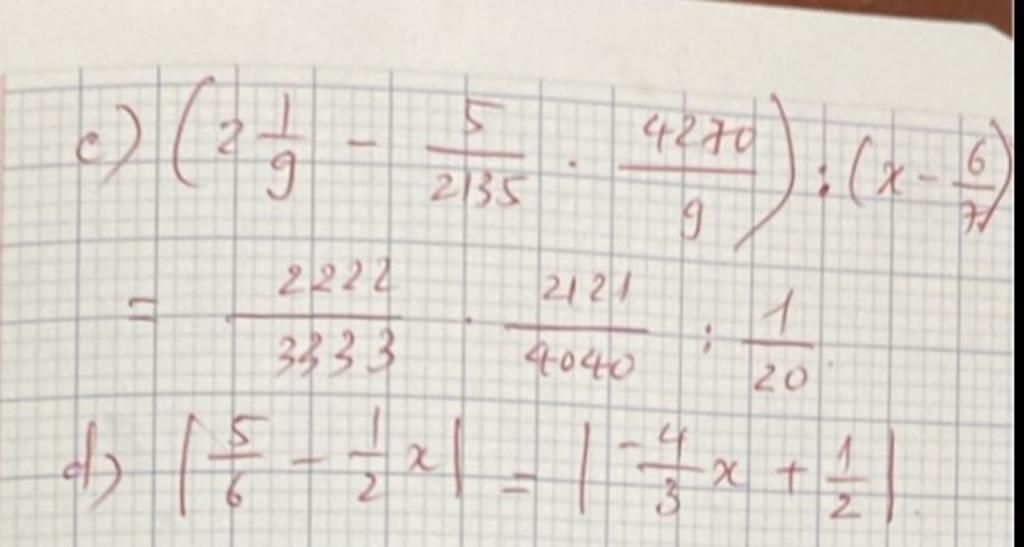 c) (2 1/9 - 5/2135 . 4270/9) : (x - 6/7)
= 2222/3333 . 2121/4040 : 1/20
d) |5/6 - 1/2 x| = |-4/3 x + 1/2|.